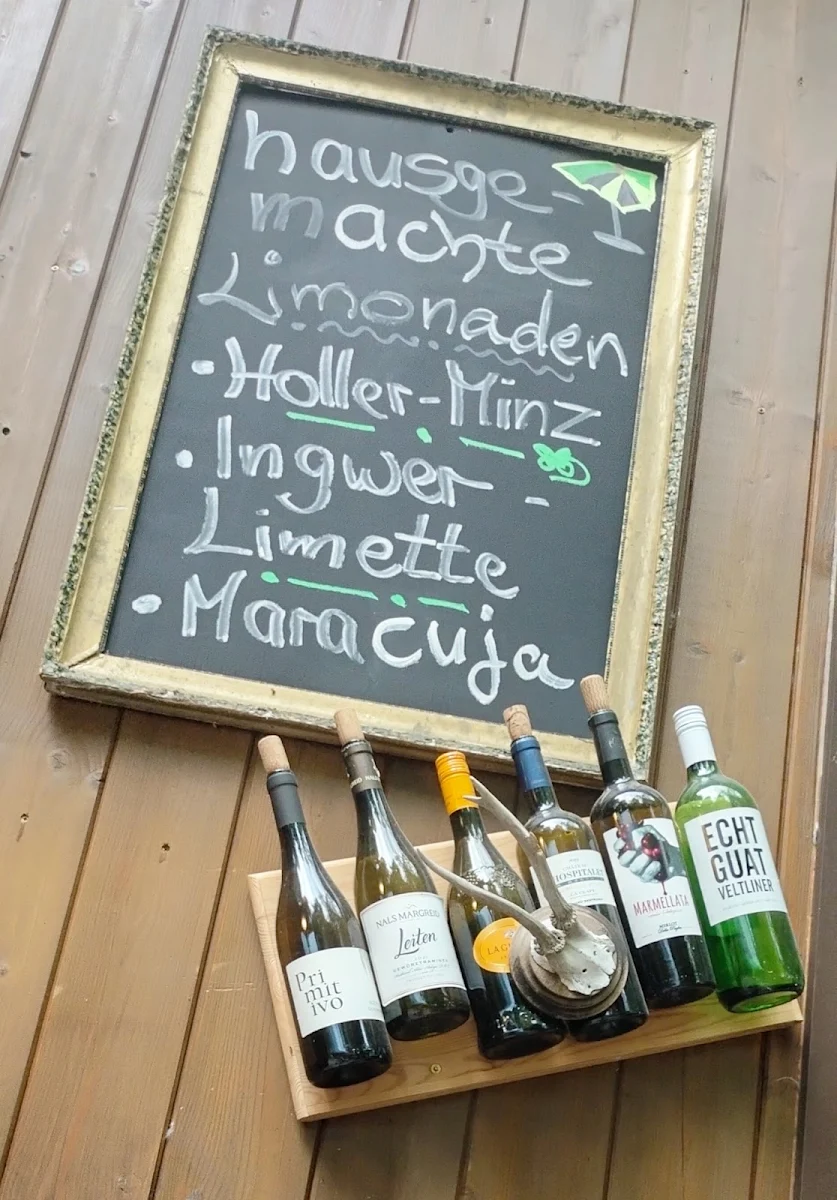 hausge-
machte
Limonaden
• Holler-Minz
• Ingwer-
Limette
• Maracuja
Pri
mit
ivo
NALS MARGREID
Leiten
GEWÜRZTRAMINER
LAG
HOSPITALE
MARMELLATA
MERLOT
ECHT
GUAT
VELTLINER